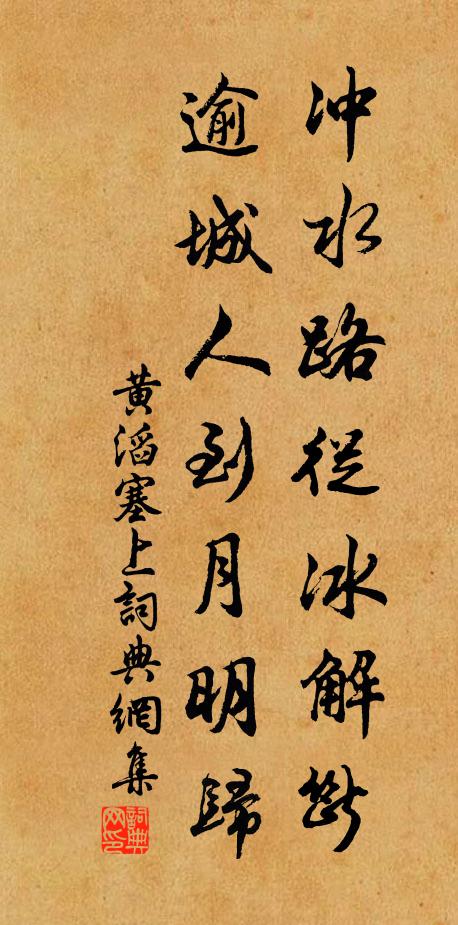 冲水路從冰解斷
逾城人到月明歸
黃滔塞上詞典網集
詞典网印